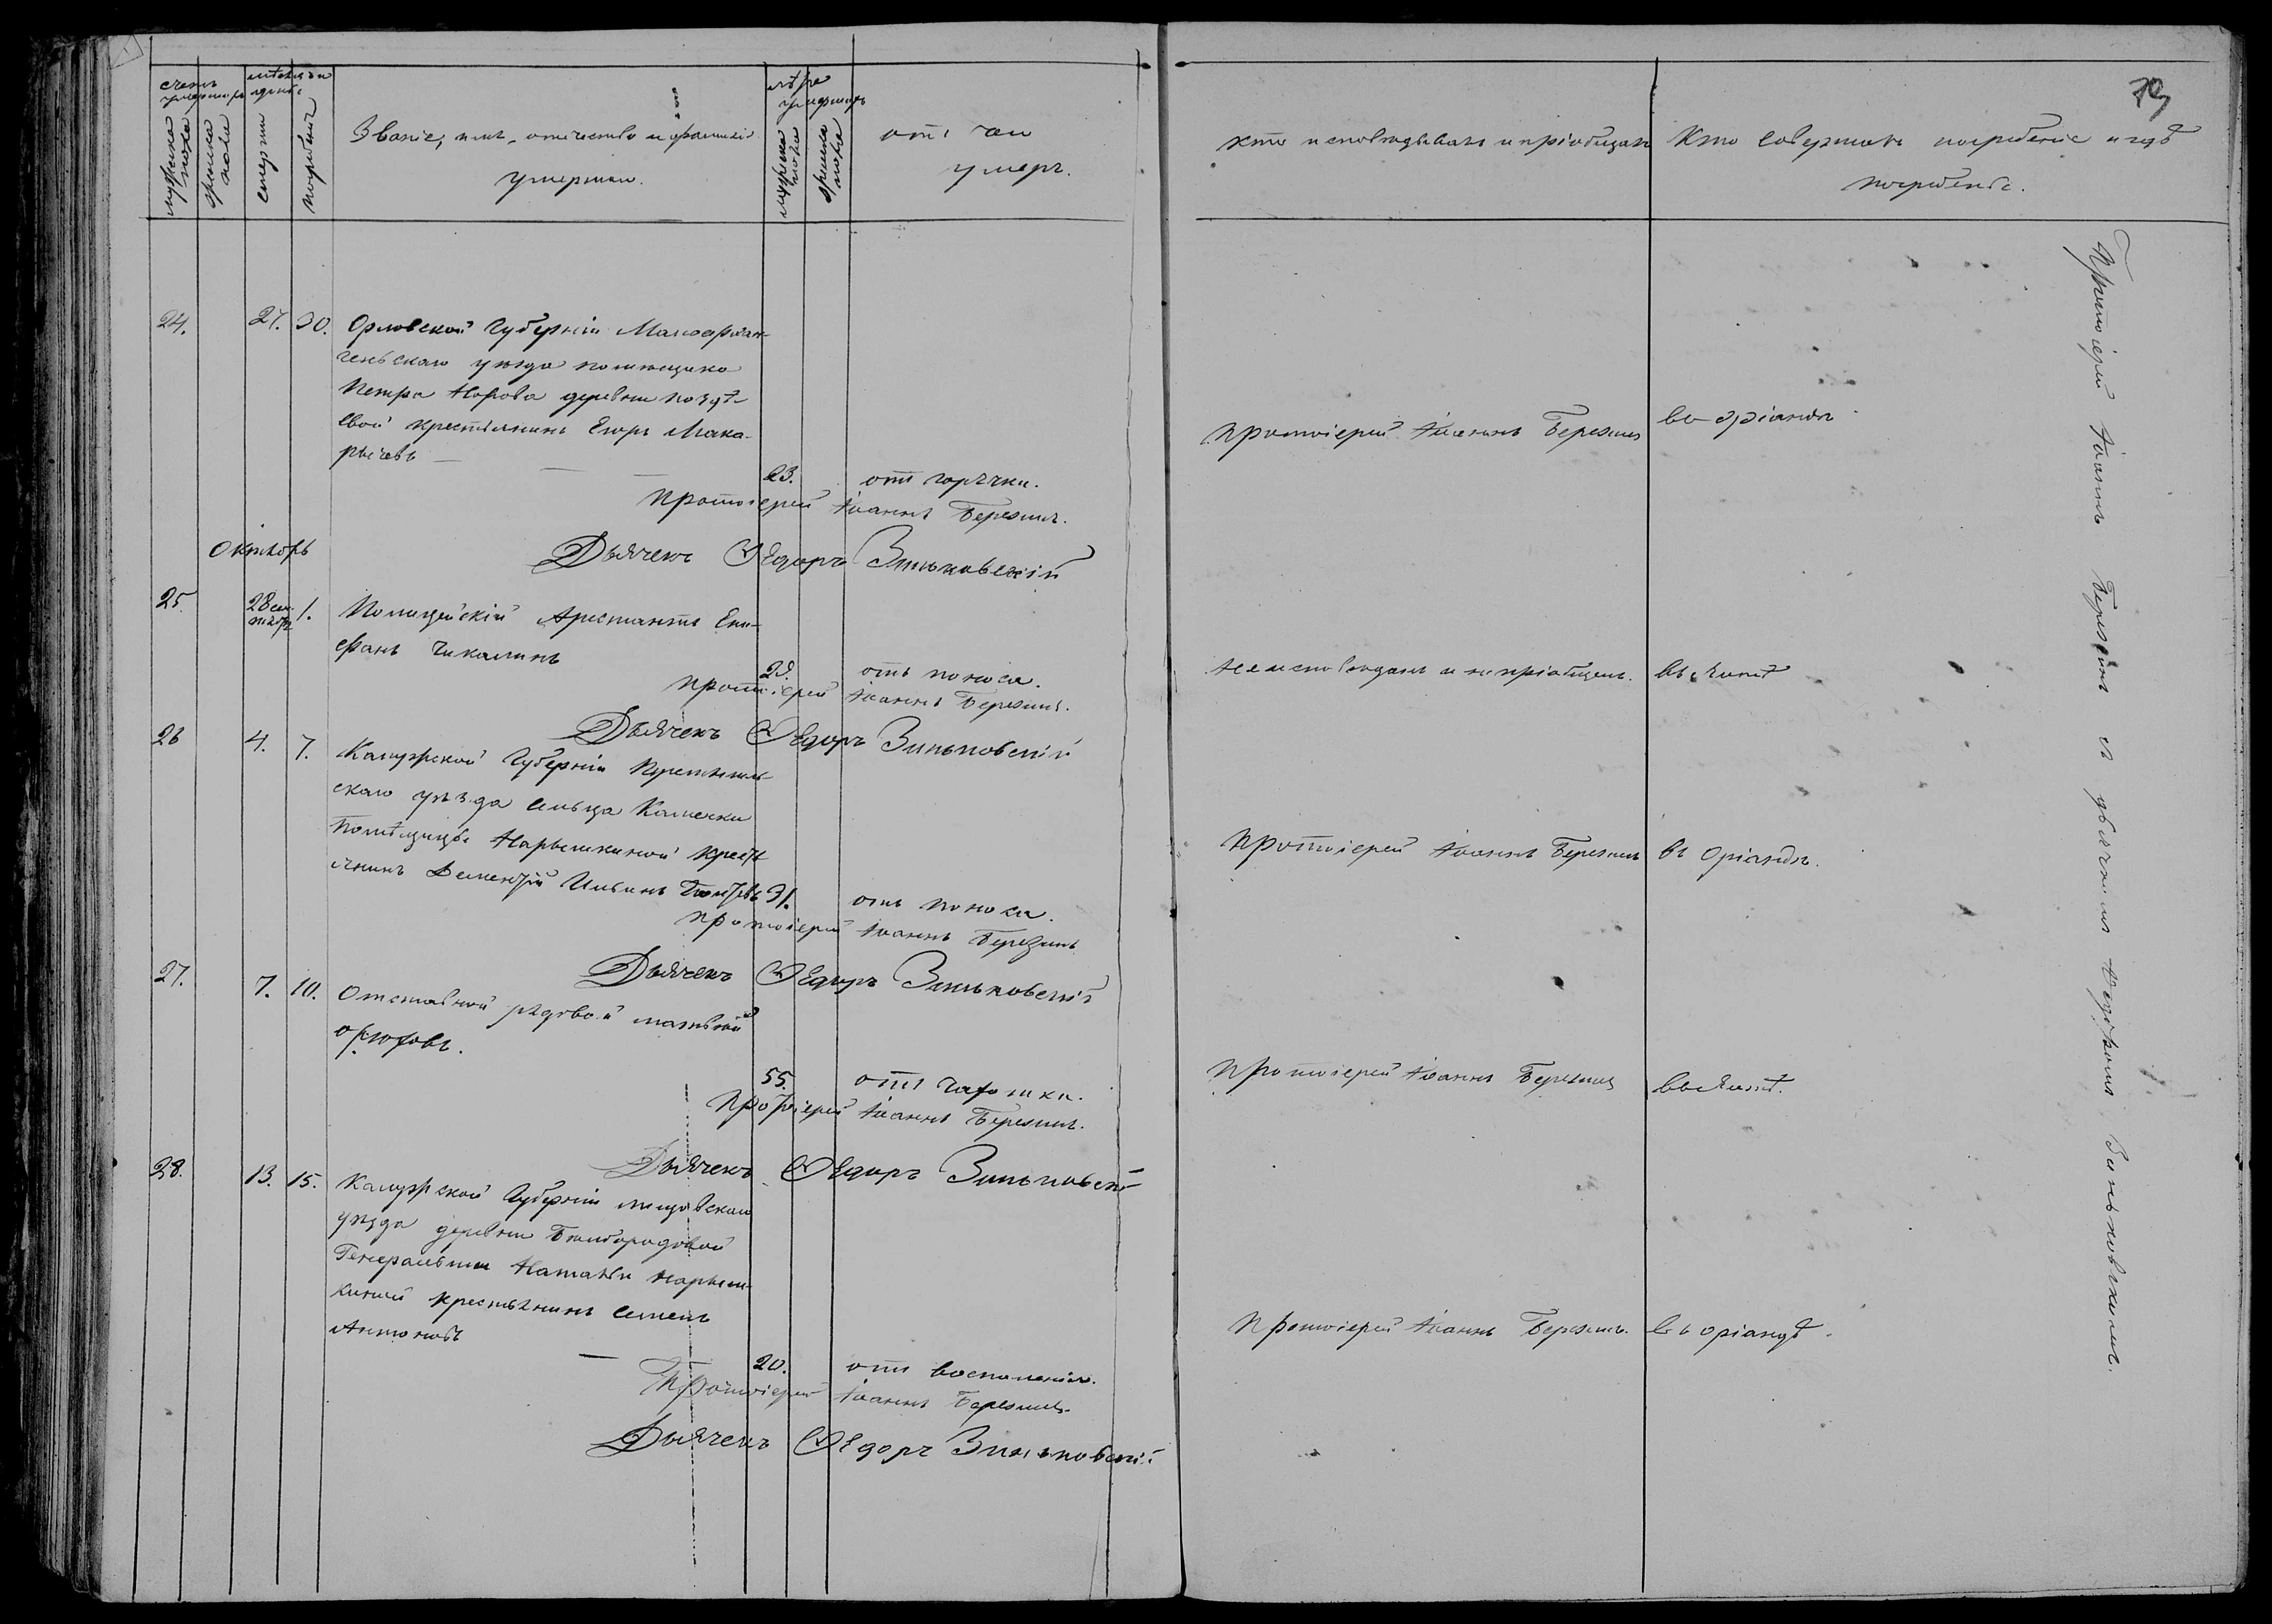 79
счетъ умершихъ
мужеска пола
женска пола
мѣсяцъ и день
смерти
погребенія
Званіе, имя, отчество и фамилія
умершаго.
лѣта умершихъ
мужеска пола
женска пола
отъ чего
умеръ.
кто исповѣдывалъ и пріобщалъ
Кто совершалъ погребеніе и гдѣ
погребенъ.
24. 27. 30. Орловской Губерніи Малоархан-
гельскаго уѣзда помѣщика
Петра Нарова деревни
евой крестьянинъ Егоръ Мака-
рычевъ
23. отъ горячки.
Протоіерей Іоаннъ Березинъ
въ Оріандѣ
Протоіерей Іоаннъ Березинъ.
Дьячекъ Ѳедоръ Зиньковскій
Октябрь
25. 28 сен-
тября 1. Полицейскій Арестантъ Епи-
фанъ Чикалинъ
отъ поноса.
не исповѣданъ и не пріобщенъ. въ Ялтѣ
Протоіерей Іоаннъ Березинъ.
Дьячекъ Ѳедоръ Зиньковскій
26 4. 7. Калужской Губерніи
скаго уѣзда сельца Каменки
Помѣщицы Нарышкиной крестья
янинъ Дементій Ильинъ 31. отъ поноса.
Протоіерей Іоаннъ Березинъ въ Оріандѣ.
Протоіерей Іоаннъ Березинъ
Дьячекъ Ѳедоръ Зиньковскій
27. 7. 10. Отставной рядовой Матвѣй
55. отъ
Протоіерей Іоаннъ Березинъ въ Ялтѣ.
Протоіерей Іоаннъ Березинъ.
Дьячекъ Ѳедоръ Зиньковскій
28. 13. 15. Калужской Губерніи Мещовскаго
уѣзда деревни
Генеральши Натальи Нарыш-
киной крестьянинъ Семенъ
Антоновъ
20. отъ воспаленія.
Протоіерей Іоаннъ Березинъ. въ Оріандѣ.
Протоіерей Іоаннъ Березинъ.
Дьячекъ Ѳедоръ Зиньковскій
Протоіерей Іоаннъ Березинъ и дьячекъ Зиньковскій.